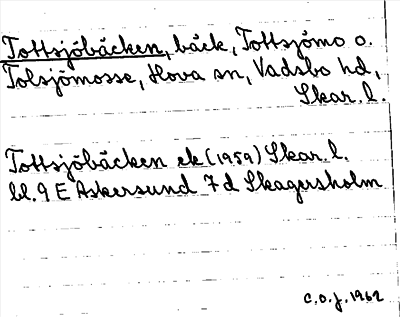 Tottsjöbäcken, bäck, Tottsjömo o.
Tolsjömosse, Hova sn, Vadsbo hd,
Skar. l.
Tottsjöbäcken ek (1959) Skar. l.
bl. 9 E Askersund 7 d Skagersholm
C.O.J. 1962